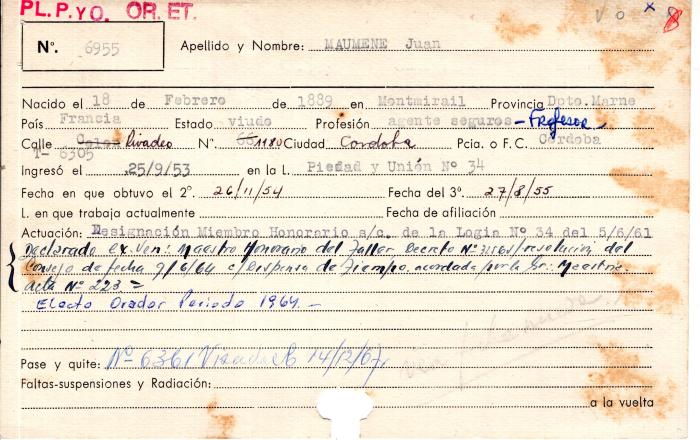 PL. P. y O. OR. ET.
V O x 8
Nº. 6955 Apellido y Nombre: MAUMENE Juan
Nacido el 18 de Febrero de 1889 en Montmirail Provincia Dpto. Marne
País Francia Estado viudo Profesión agente seguros - Profesor
Calle Rivadeo N° 1180 Ciudad Cordoba Pcia. o F.C. Córdoba
T- 6305
Ingresó el 25/9/53 en la L. Piedad y Unión Nº 34
Fecha en que obtuvo el 2°. 26/11/54 Fecha del 3°. 27/8/55
L. en que trabaja actualmente Fecha de afiliación
Actuación: Designación Miembro Honorario a/c. de la Logia Nº 34 del 5/6/61
Declarado ex. Ven: Maestro Honorario del Taller Decreto N° resolución del
Consejo de fecha 9/6/64 c/Dispensa de Tiempo, acordada por la Gr: Maestria
acta Nº 223 =
Electo Orador Periodo 1964. -
Pase y quite: Nº 6361 14/12/67
Faltas-suspensiones y Radiación:
a la vuelta